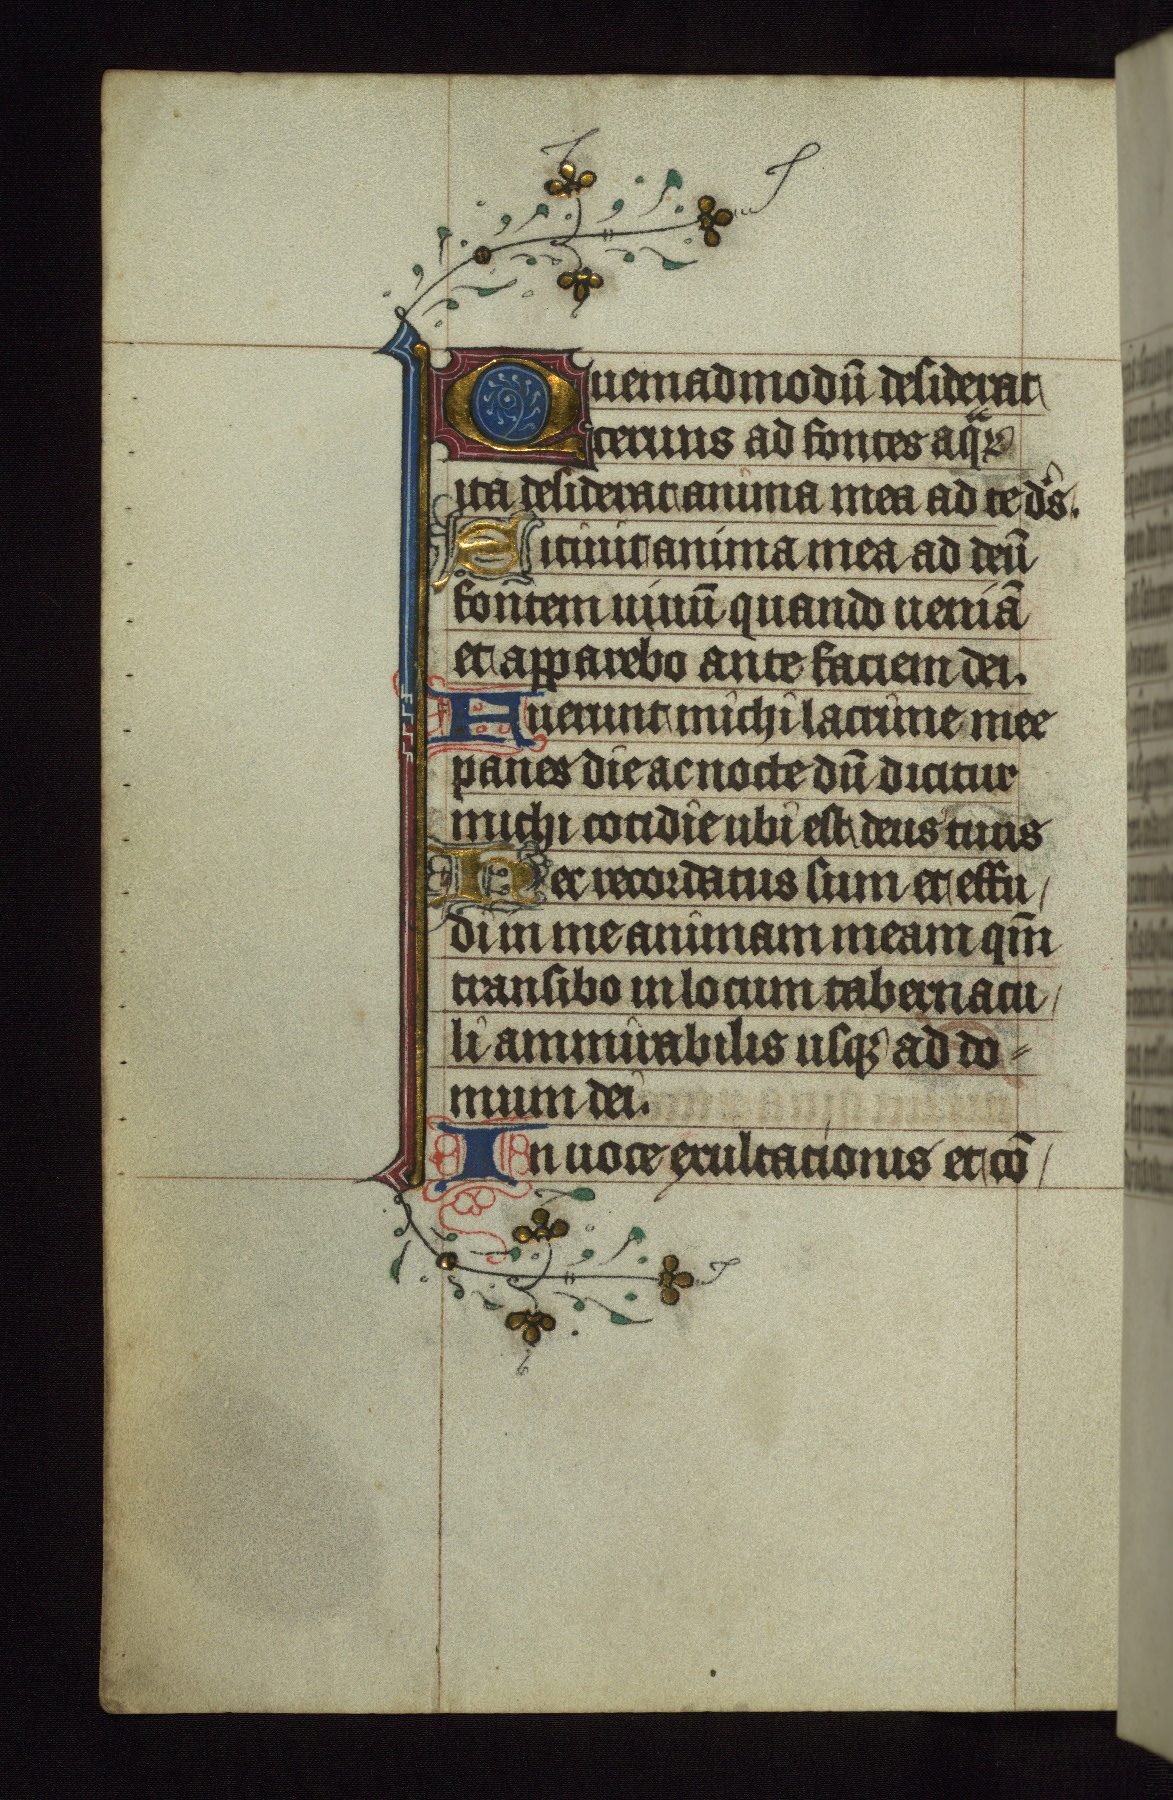 Quemadmodū desiderat
ceruus ad fontes aqͣꝝ
ita desiderat anima mea ad te dꝰs.
Sitiuit anima mea ad deū
fontem uiuū quando ueniā
et apparebo ante faciem dei.
Fuerunt michi lacrime mee
panes die ac nocte dū dicitur
michi cotidie ubi est deus tuus
Hec recordatus sum et effu/
di in me animam meam qm̄
transibo in locum tabernacu/
li ammirabilis usqꝫ ad do⸗
mum dei.
In uoce exultationis et cō/